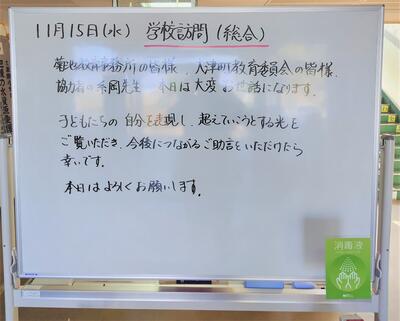 11月15日(水) 学校訪問(総合)
菊池教育事務所の皆様、大津町教育委員会の皆様、
協力者の糸岡先生、本日は大変お世話になります。
子どもたちの自分を表現し、超えていこうとする光を
ご覧いただき、今後につながるご助言をいただけたら
幸いです。
本日はよろしくお願いします。
消毒液